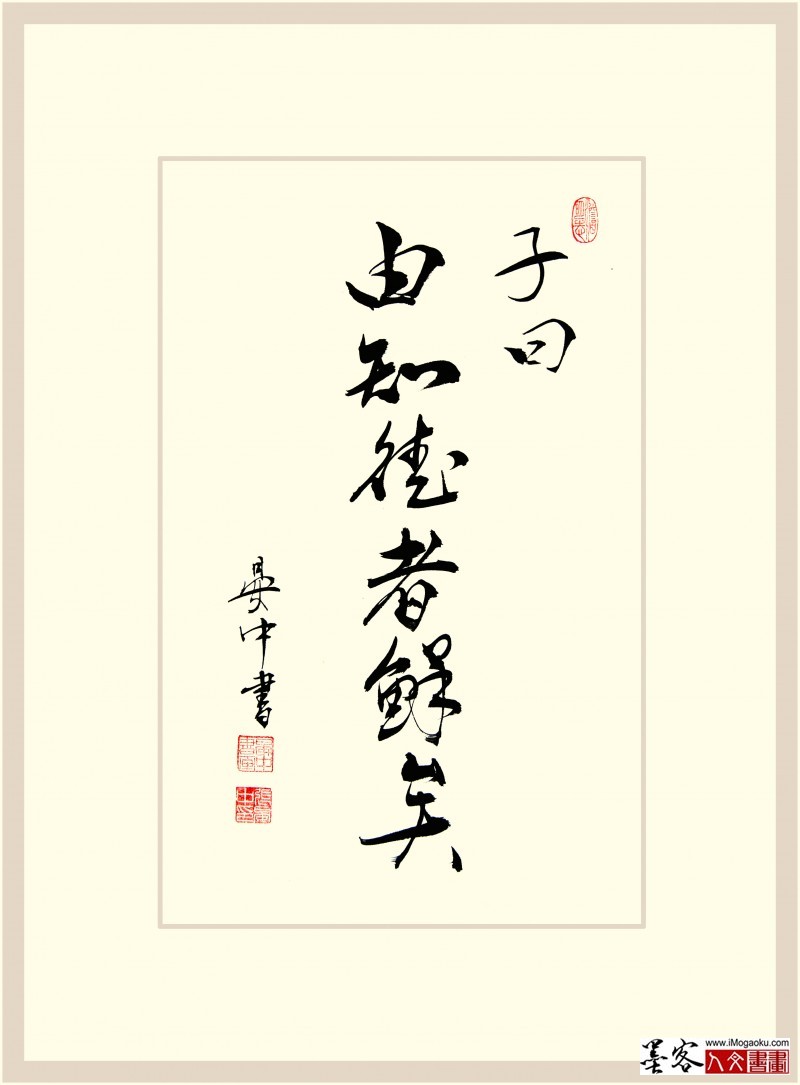 子曰
由知德者鲜矣
中書
墨客
www.iMogaoku.com
人文書畫